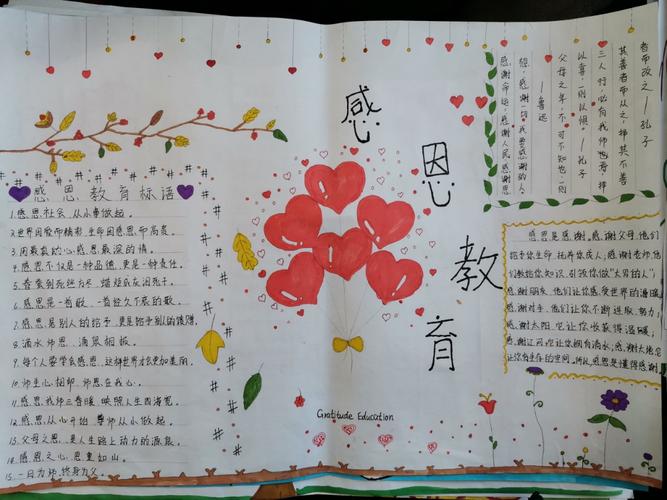 感恩教育标语
1.感恩社会,从小事做起。
2.世界因爱而精彩,生命因感恩而高贵。
3.用最真的心,感恩最深的情。
4.感恩不仅是一种品德,更是一种责任。
5.春蚕到死丝方尽,蜡炬成灰泪始干。
6.感恩是一首歌,一首经久不衰的歌。
7.感恩是别人的给予,更是给予别人的馈赠。
8.滴水师恩,涌泉相报。
9.每个人要学会感恩,这样世界才会更加美丽。
10.师生心相印,师恩在我心。
11.感恩我师三春暖,映照人生四海宽。
12.感恩从心开始 尊师从小做起。
13.父母之恩,是人生路上动力的源泉。
14.感恩之心,恩重如山。
15.一日为师,终身为父。
感恩教育
Gratitude Education
感谢命运,感谢人民,感谢思
想,感谢一切我要感谢的人。
——鲁迅
父母之年,不可不知也。一则
以喜,一则以惧。——孔子
三人行,必有我师也焉。择
其善者而从之,择其不善
者而改之——孔子
感恩是感谢,感谢父母,他们
给予你生命,抚养你成人;感谢老师,他
们教给你知识,引领你做"大写的人";
感谢朋友,他们让你感受世界的温暖
感谢对手,他们让你不断进取、努力;
感谢太阳,它让你收获得温暖;
感谢江河,它让你拥有清水;感谢大地,它
让你有生存的空间。所以感恩是懂得感谢。